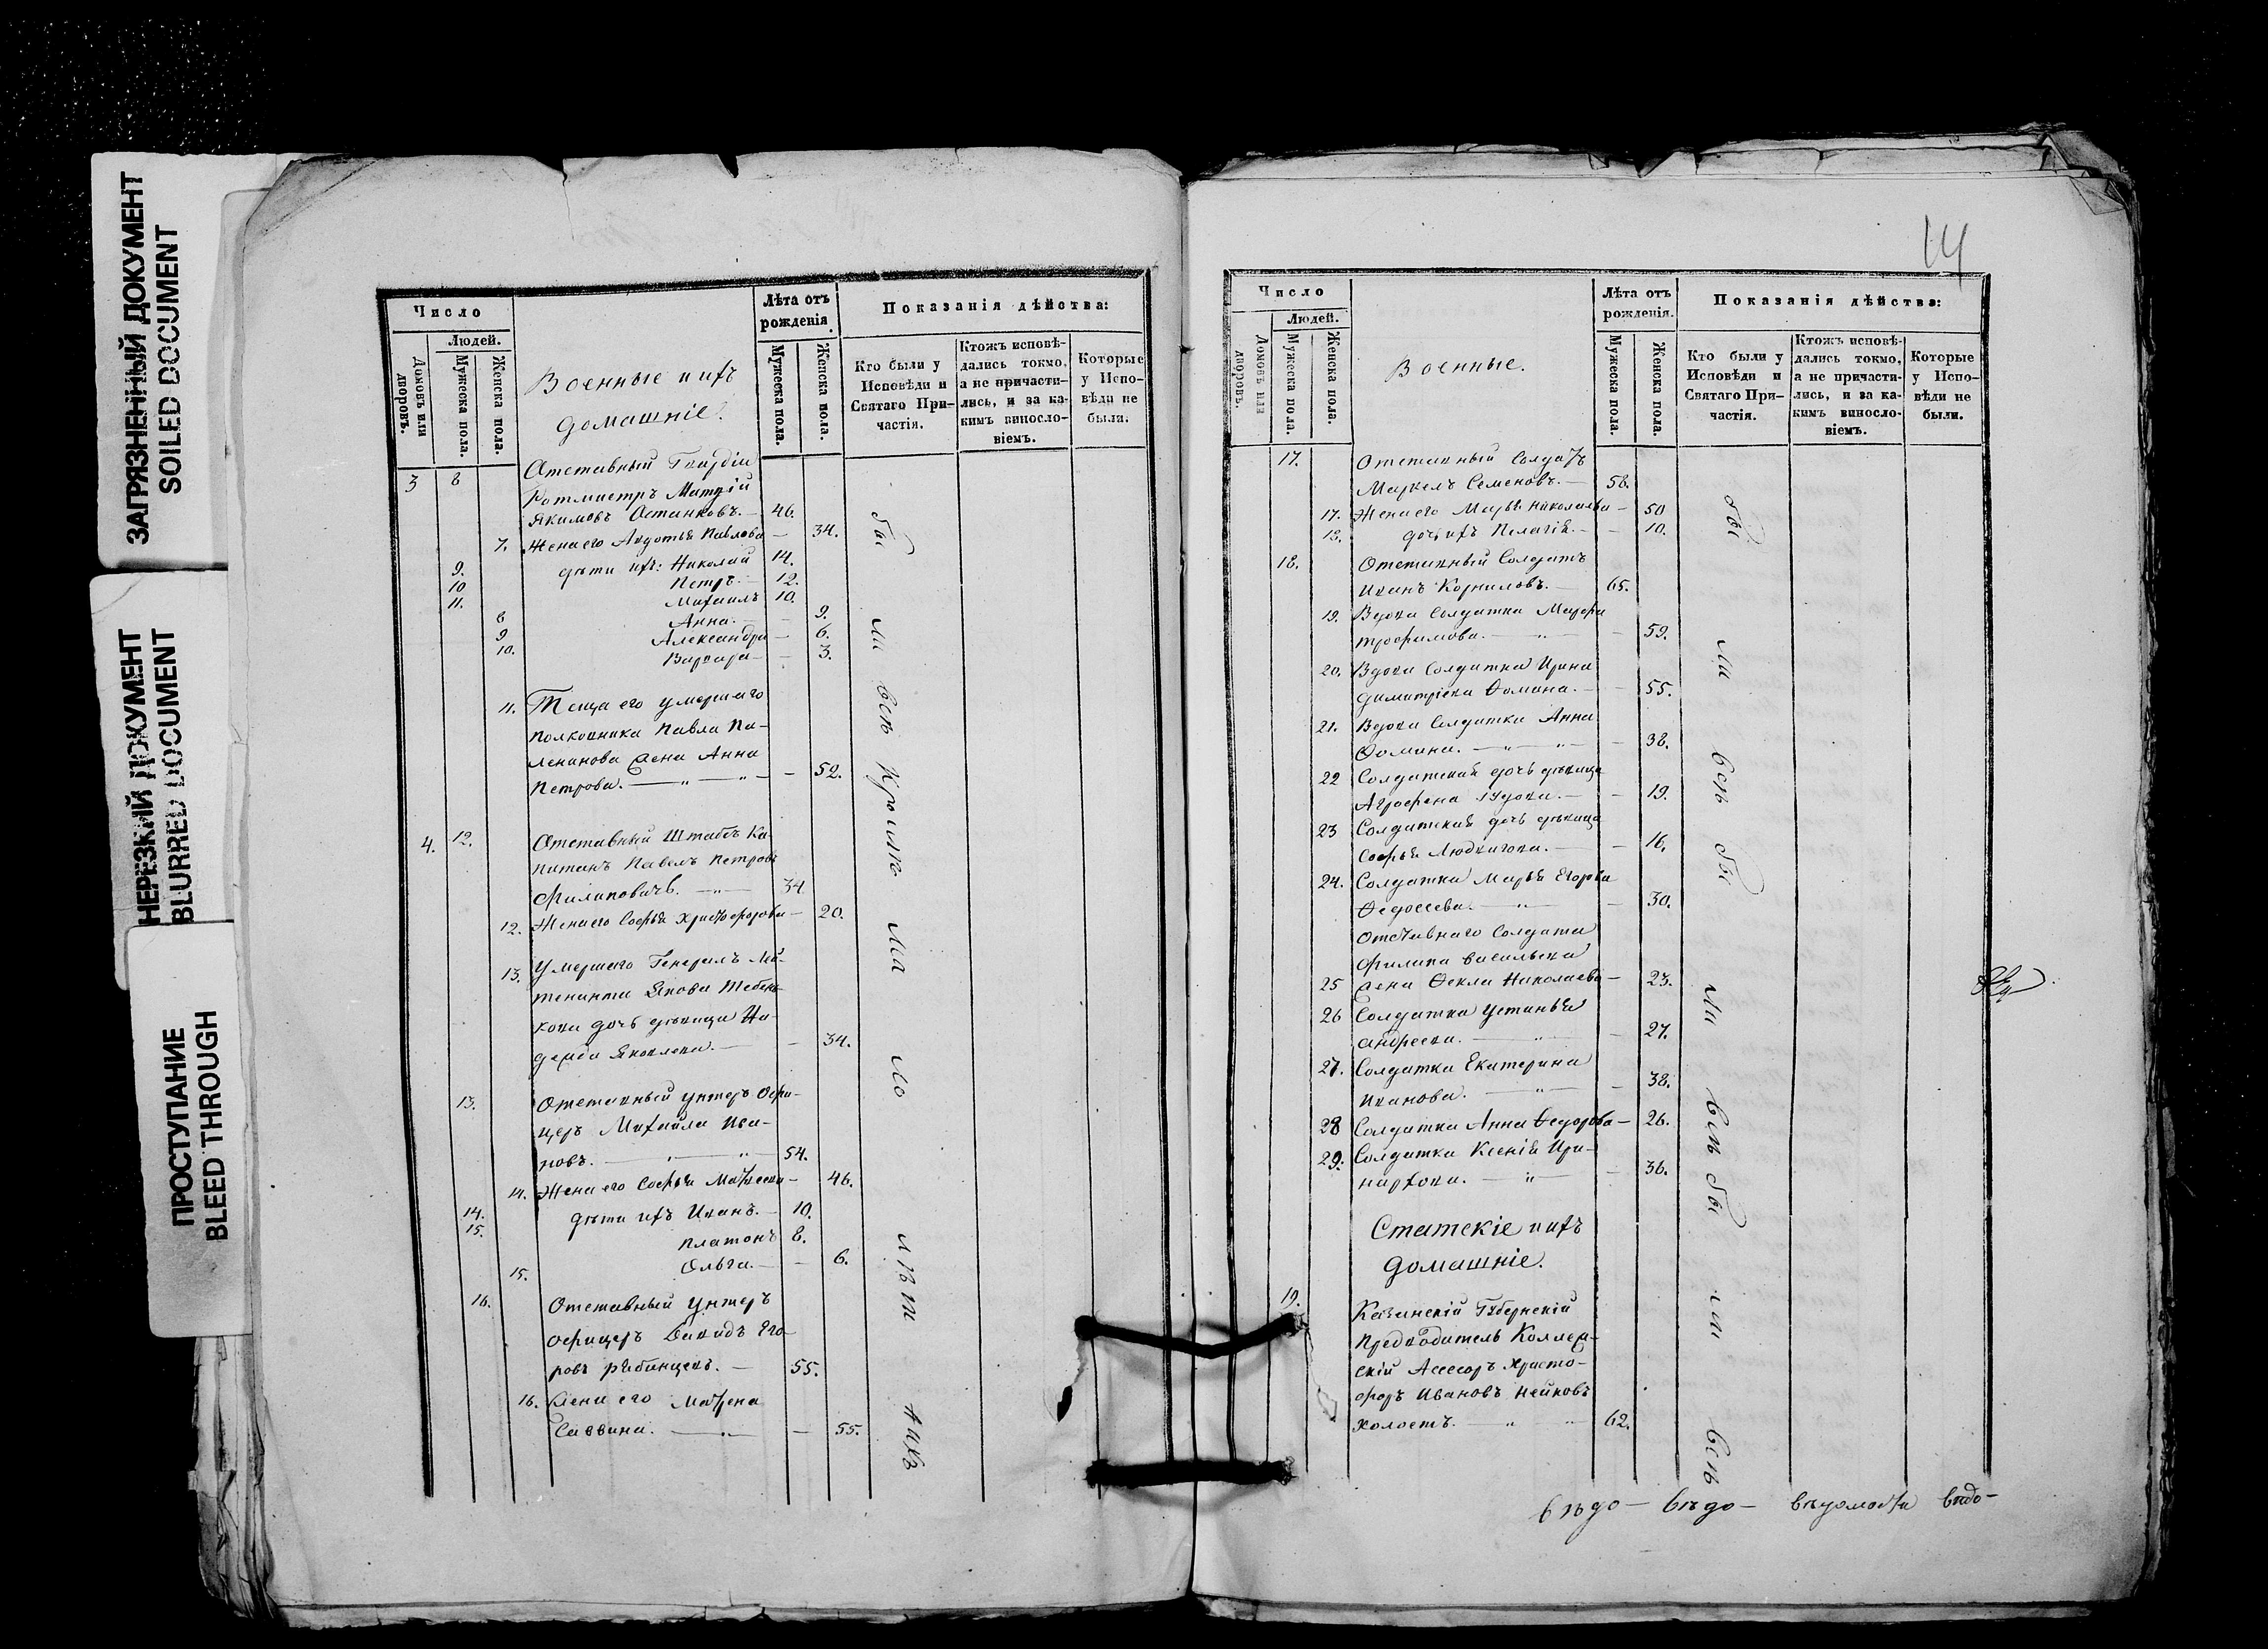 ЗАГРЯЗНЕННЫЙ ДОКУМЕНТ
SOILED DOCUMENT
НЕРЕЗКИЙ ДОКУМЕНТ
BLURRED DOCUMENT
ПРОСТУПАНИЕ
BLEED THROUGH
Число
Людей.
Домовъ или дворовъ.
Мужеска пола.
Женска пола.
Военные и ихъ
домашніе.
Лѣта отъ
рожденія.
Мужеска пола.
Женска пола.
Показанія дѣйства:
Кто были у
Исповѣди и
Святаго При-
частія.
Ктожъ исповѣ-
дались токмо,
а не причасти-
лись, и за ка-
кимъ виносло-
віемъ.
Которые
у Испо-
вѣди не
были.
3 8 Отставный Гвардіи
Ротмистръ
Якимовъ Останковъ. — 46.
7. Жена его Авдотья Павлова — 34.
9. дѣти ихъ: Николай 14.
10 Петръ. — 12.
11. Михаилъ 10.
8 Анна. — 9.
9 Александра — 6.
10. Варвара — 3.
11. Теща его умершаго
полковника Павла Па-
жена Анна
Петрова. — 52.
4. 12. Отставный Штабсъ Ка-
питанъ Павелъ Петровъ
Филиповичъ. — 34
12. Жена его Софья Христофорова — 20.
13. Умершаго Генералъ Лей-
тенанта Якова
дочь дѣвица На-
дежда Яковлева. — 34.
13. Отставный Унтеръ Офи-
церъ Михайла Ива-
новъ. — 54.
14. Жена его Софья Матвеева — 46.
14. дѣти ихъ Иванъ. — 10.
15. Платонъ 8.
15. Ольга. — 6.
16. Отставный Унтеръ
офицеръ Давидъ Его-
ровъ — 55.
16. Жена его Матрена
Саввина. — 55.
бы
ли всѣ кромѣ
ма
ло
лѣт
нихъ
14
Число
Людей.
Домовъ или дворовъ.
Мужеска пола.
Женска пола.
Военные.
Лѣта отъ
рожденія.
Мужеска пола.
Женска пола.
Показанія дѣйства:
Кто были у
Исповѣди и
Святаго При-
частія.
Ктожъ исповѣ-
дались токмо,
а не причасти-
лись, и за ка-
кимъ виносло-
віемъ.
Которые
у Испо-
вѣди не
были.
17. Отставный Солдатъ
Маркелъ Семеновъ. — 58.
17. Жена его Марья Николаева — 50
18. дочь ихъ Пелагія. — 10.
18. Отставный Солдатъ
Иванъ Корниловъ. — 65.
19. Вдова Солдатка Марфа
Трофимова. — 59.
20. Вдова Солдатка Ирина
Димитріева Ѳомина. — 55.
21. Вдова Солдатка Анна
Ѳомина. — 38.
22 Солдатская дочь дѣвица
Агрофена — 19.
23 Солдатская дочь дѣвица
Софья — 16.
24. Солдатка Марья Егорова
Ѳедосеева. — 30.
Отставнаго Солдата
Филипа Васильева
25 жена Ѳекла Николаева — 23.
26 Солдатка Устинья
Андреева. — 27.
27. Солдатка Екатерина
Иванова. — 38.
28 Солдатка Анна Ѳедорова — 26.
29. Солдатка Ксенія Ири-
нархова. — 36.
Статскіе и ихъ
домашніе.
19. Казанскій Губернскій
Предводитель Коллеж-
скій Асесоръ Христо-
форъ Ивановъ Нейковъ
холостъ. — 62.
бы
ли
всѣ
бы
ли
всѣ
бы
ли
всѣ
вѣдо— вѣдо— вѣдомости вѣдо—